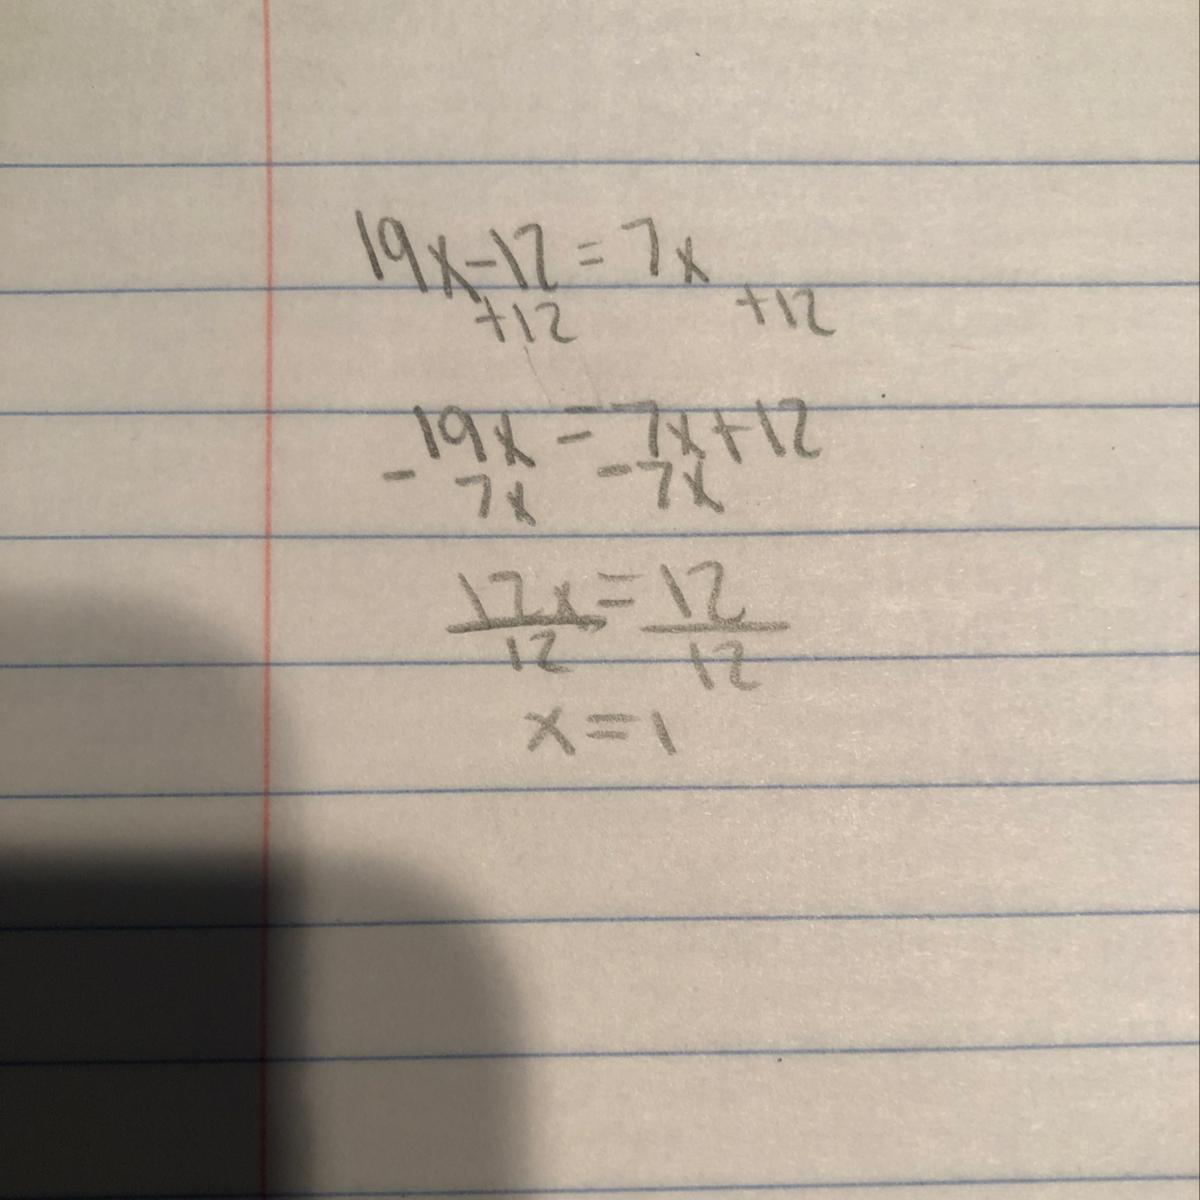 19x-12=7x
+12 +12
19x=7x+12
-7x -7x
12x=12
12 12
x=1